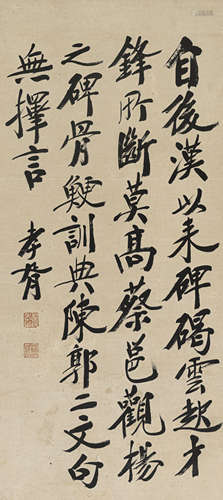 自後漢以来碑碣雲起才
鋒所斷莫高蔡邕觀楊
之碑骨鯁訓典陳郭二文句
無擇言
孝胥